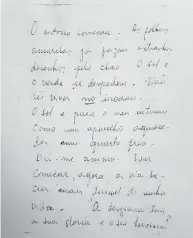 O outono começou. As folhas
amarelas já fazem estranhos
desenhos pelo chão. O sol e
o verde se despedem.
viver no inverno.
O sol é para o meu outono
como um aparelho aquece-
dor num quarto frio.
Dá-me ânimo. Vou
começar, agora, a
mais de minha
vida. A desgraça tem
a sua glória e o seu heroísmo